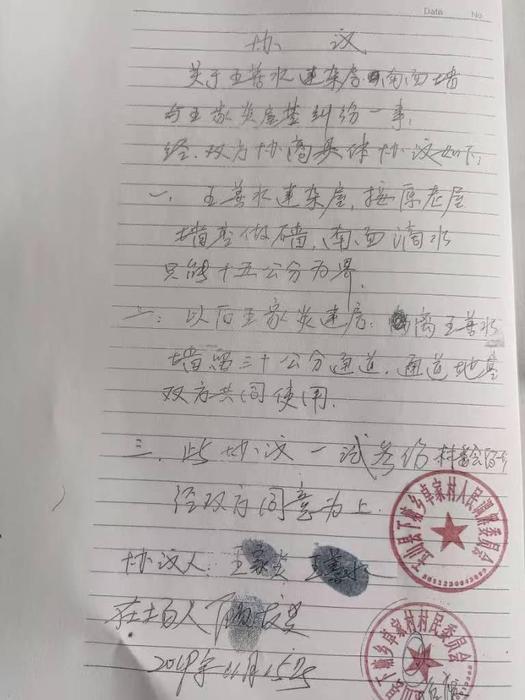 Date No
协 议
关于王善水建杂房南面墙
与王家炎屋基纠纷一事,
经双方协商具体协议如下:
一、王善水建杂屋,按原老屋
墙基做墙,南面滴水
只能十五公分为界.
二:以后王家炎建房:离王善水
墙留三十公分通道.通道地基
双方共同使用.
三.此协议一试叁份
经双方同意为上.
玉山县下塘乡卓家村人民调解委员会
协议人:王家炎 王善水
在土百人
玉山县下塘乡卓家村村民委员会
11月15号